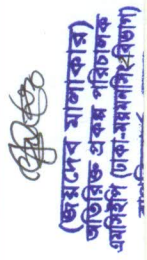 (জয়দেব মালাকার)
অতিরিক্ত প্রকল্প পরিচালক
এমসিইপি (ঢাকা-ময়মনসিংহ বিভাগ)